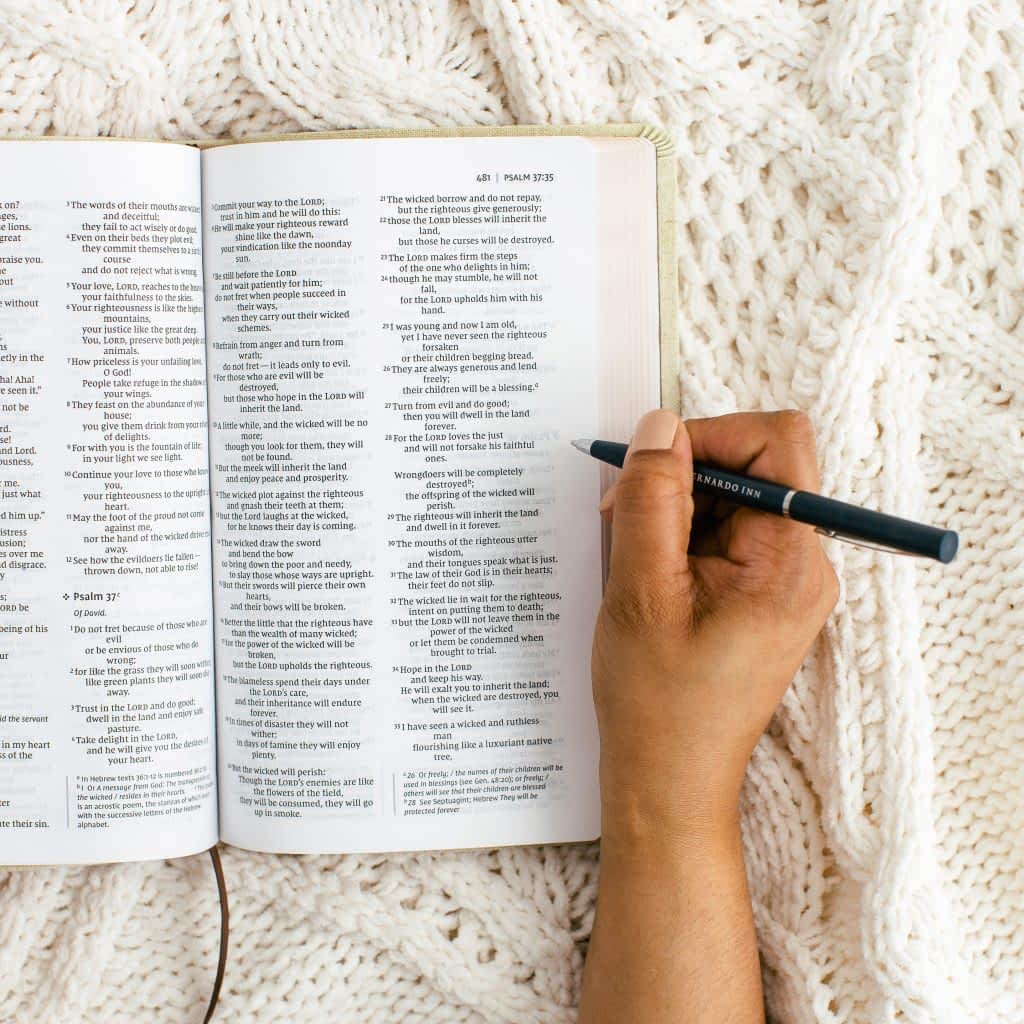 k on?
ges,
e lions.
great
praise you.
ne
out
e without
s
etly in the
ha! Aha!
e seen it."
not be
rd.
se!
nd Lord.
ousness,
r me.
just what
ed him up."
istress
usion;
es over me
d disgrace.
y
s;
ORD be
being of his
ur
id the servant
in my heart
ss of the
ter
ate their sin.
3 The words of their mouths are
and deceitful;
they fail to act wisely or do good.
4 Even on their beds they plot evil;
they commit themselves to a
course
and do not reject what is wrong.
5 Your love, LORD, reaches to the
your faithfulness to the skies.
6 Your righteousness is like the
mountains,
your justice like the great deep.
You, LORD, preserve both people
animals.
7 How priceless is your unfailing love,
O God!
People take refuge in the shadow
your wings.
8 They feast on the abundance of your
house;
you give them drink from your
of delights.
9 For with you is the fountain of life;
in your light we see light.
10 Continue your love to those who know
you,
your righteousness to the upright
heart.
11 May the foot of the proud not come
against me,
nor the hand of the wicked drive
away.
12 See how the evildoers lie fallen —
thrown down, not able to rise!
Psalm 37c
Of David.
1 Do not fret because of those who are
evil
or be envious of those who do
wrong;
2 for like the grass they will soon
like green plants they will soon die
away.
3 Trust in the LORD and do good;
dwell in the land and enjoy safe
pasture.
4 Take delight in the LORD,
and he will give you the desires of
your heart.
a In Hebrew texts 36:1-12 is numbered
b 1 Or A message from God: The transgression of
the wicked / resides in their hearts.
is an acrostic poem, the stanzas of which
with the successive letters of the Hebrew
alphabet.
481 | PSALM 37:35
5 Commit your way to the LORD;
trust in him and he will do this:
6 He will make your righteous reward
shine like the dawn,
your vindication like the noonday
sun.
7 Be still before the LORD
and wait patiently for him;
do not fret when people succeed in
their ways,
when they carry out their wicked
schemes.
8 Refrain from anger and turn from
wrath;
do not fret — it leads only to evil.
9 For those who are evil will be
destroyed,
but those who hope in the LORD will
inherit the land.
10 A little while, and the wicked will be no
more;
though you look for them, they will
not be found.
11 But the meek will inherit the land
and enjoy peace and prosperity.
12 The wicked plot against the righteous
and gnash their teeth at them;
13 but the Lord laughs at the wicked,
for he knows their day is coming.
14 The wicked draw the sword
and bend the bow
to bring down the poor and needy,
to slay those whose ways are upright.
15 But their swords will pierce their own
hearts,
and their bows will be broken.
16 Better the little that the righteous have
than the wealth of many wicked;
17 for the power of the wicked will be
broken,
but the LORD upholds the righteous.
18 The blameless spend their days under
the LORD's care,
and their inheritance will endure
forever.
19 In times of disaster they will not
wither;
in days of famine they will enjoy
plenty.
20 But the wicked will perish:
Though the LORD's enemies are like
the flowers of the field,
they will be consumed, they will go
up in smoke.
21 The wicked borrow and do not repay,
but the righteous give generously;
22 those the LORD blesses will inherit the
land,
but those he curses will be destroyed.
23 The LORD makes firm the steps
of the one who delights in him;
24 though he may stumble, he will not
fall,
for the LORD upholds him with his
hand.
25 I was young and now I am old,
yet I have never seen the righteous
forsaken
or their children begging bread.
26 They are always generous and lend
freely;
their children will be a blessing.a
27 Turn from evil and do good;
then you will dwell in the land
forever.
28 For the LORD loves the just
and will not forsake his faithful
ones.
Wrongdoers will be completely
destroyedb;
the offspring of the wicked will
perish.
29 The righteous will inherit the land
and dwell in it forever.
30 The mouths of the righteous utter
wisdom,
and their tongues speak what is just.
31 The law of their God is in their hearts;
their feet do not slip.
32 The wicked lie in wait for the righteous,
intent on putting them to death;
33 but the LORD will not leave them in the
power of the wicked
or let them be condemned when
brought to trial.
34 Hope in the LORD
and keep his way.
He will exalt you to inherit the land;
when the wicked are destroyed, you
will see it.
35 I have seen a wicked and ruthless
man
flourishing like a luxuriant native
tree,
a 26 Or freely; / the names of their children will be
used in blessings (see Gen. 48:20); or freely; /
others will see that their children are blessed
b 28 See Septuagint; Hebrew They will be
protected forever
ERNARDO INN